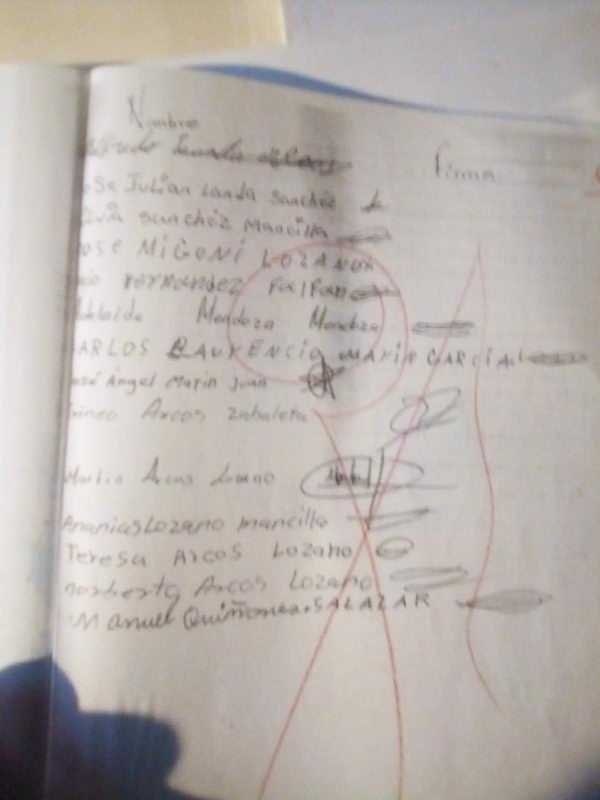 Nombre
Firma
Jose Julian Landa Sanchéz
Sanchéz Mancilla
JOSE MiGONi LOZANO
Fernandez Falfan
Adelaida Mendoza Mendoza
CARLOS LAURENCIO MARIN GARCIA
José Angel Marin Juan
Irineo Arcos Zabaleta
Arcos Lozano
Ananias Lozano mancilla
Teresa Arcos Lozano
norberta Arcos Lozano
Manuel Quiñones SALAZAR